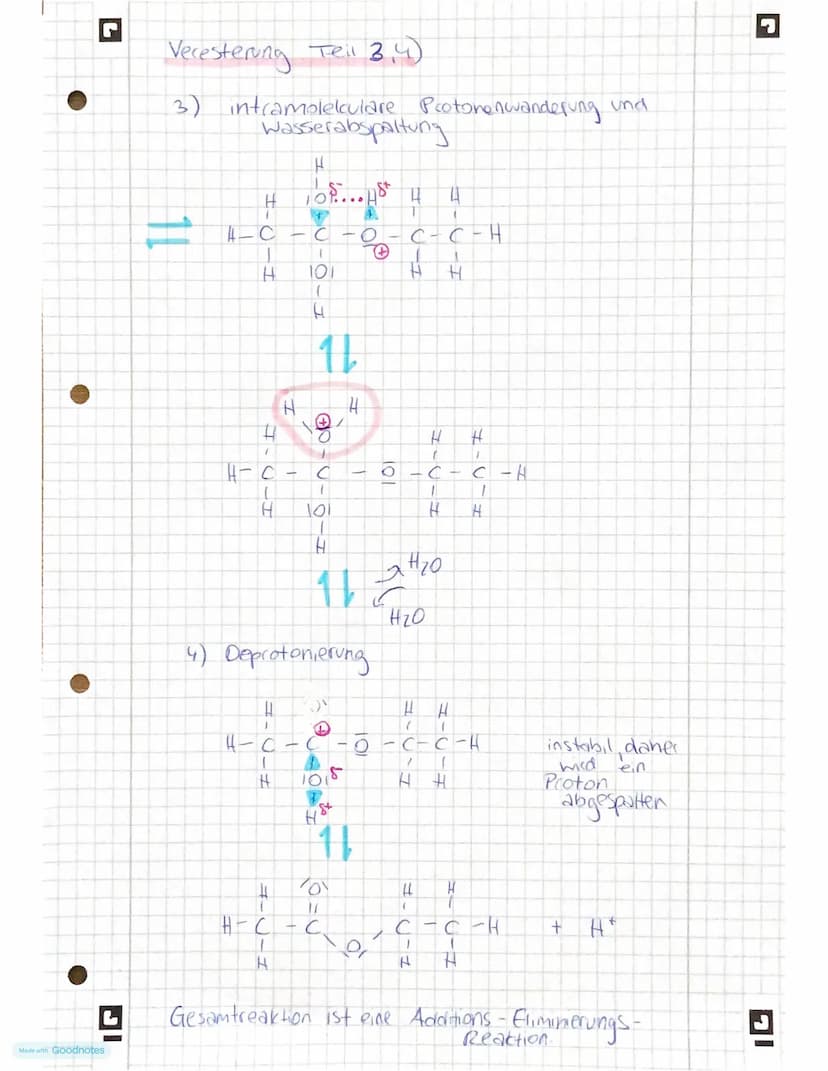 Veresterung Teil 3,4)
3) intramolekulare Protonenwanderung und
Wasserabspaltung
H
H |O| δ- .... H δ+ H H
H - C - C - O - C - C - H
⊕
H |O| H H
H
H ⊕ H
H O H H
H - C - C - O - C - C - H
H |O| H H
H
H2O
H2O
4) Deprotonierung
H ⊕ H H
H - C - C - O - C - C - H
H |O| δ- H H
H δ+
instabil, daher
wird ein
Proton
abgespalten
H O H H
H - C - C C - C - H + H+
O
H H H
Gesamtreaktion ist eine Additions - Eliminierungs -
Reaktion
Made with Goodnotes